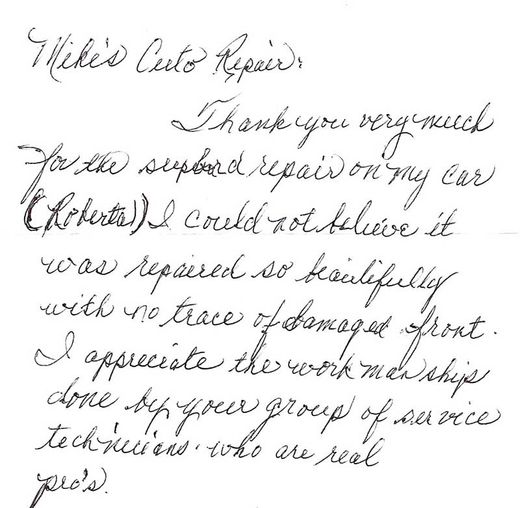 Mike's Auto Repair:
Thank you very much
for the superb repair on my car
(Roberta)) I could not believe it
was repaired so beautifully
with no trace of damaged front.
I appreciate the work man ship
done by your group of service
technicians. who are real
pro's.